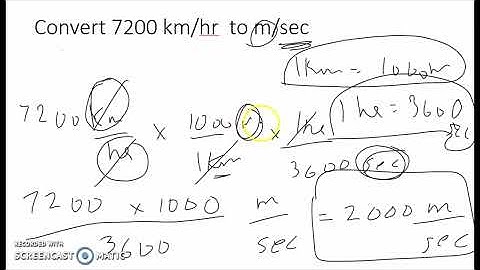 Convert 7200 km/hr to m/sec
1Km = 1000m
1 hr = 3600 sec
7200 Km/hr x 1000 m/1Km x 1hr/3600 sec
7200 x 1000 / 3600 m/sec = 2000 m/sec
RECORDED WITH
SCREENCAST MATIC